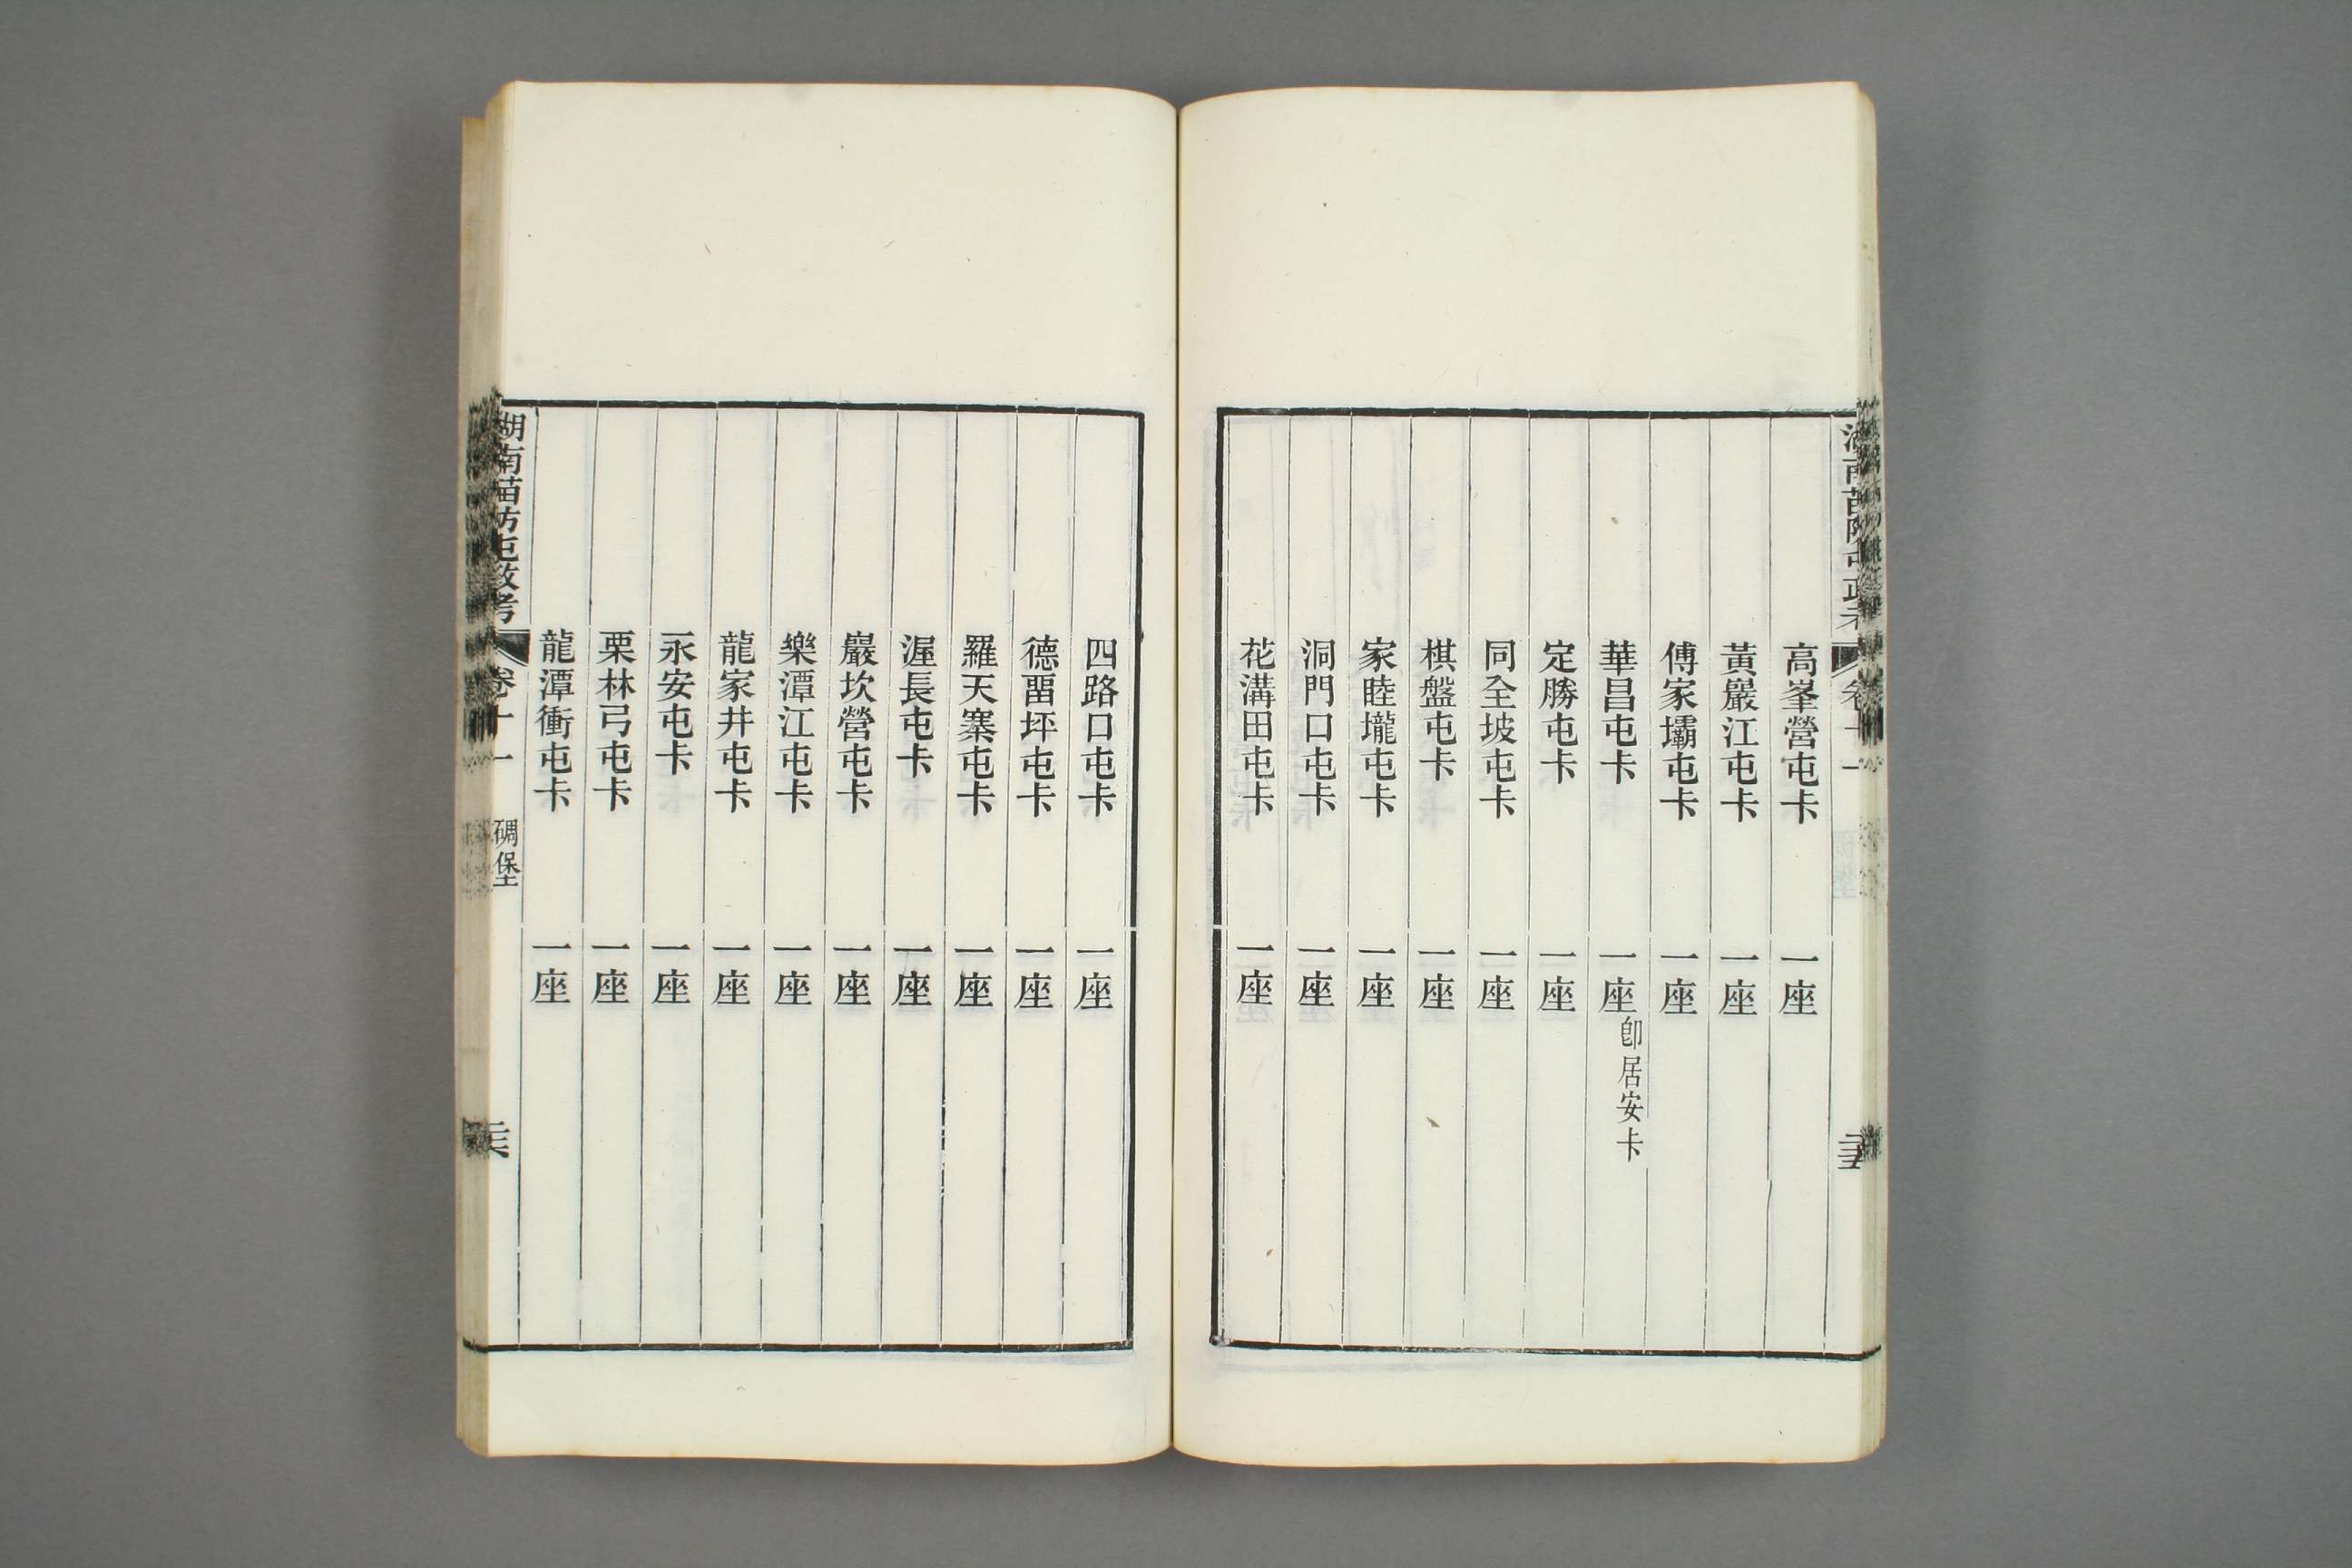 高峯營屯卡 一座
黃巖江屯卡 一座
傅家壩屯卡 一座
華昌屯卡 一座 卽居安卡
定勝屯卡 一座
同全坡屯卡 一座
棋盤屯卡 一座
家睦壠屯卡 一座
洞門口屯卡 一座
花溝田屯卡 一座
四路口屯卡 一座
德畱坪屯卡 一座
羅天寨屯卡 一座
渥長屯卡 一座
巖坎營屯卡 一座
樂潭江屯卡 一座
龍家井屯卡 一座
永安屯卡 一座
栗林弓屯卡 一座
龍潭衝屯卡 一座
湖南苗防屯政考 卷十一 碉堡